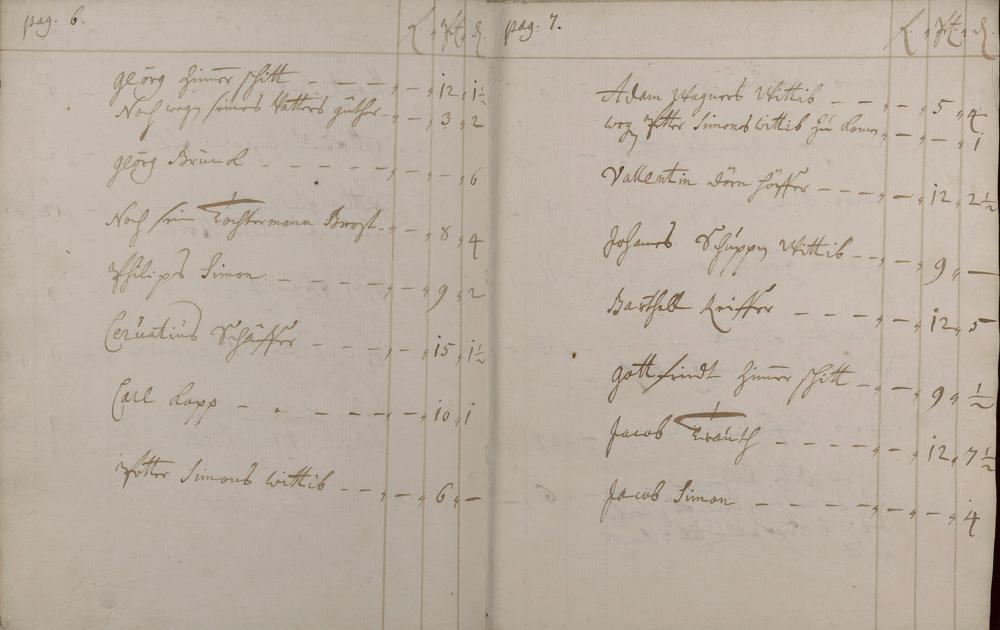 pag. 6.
georg Zimmer shitt - - - " - " 12 " 1½
Noch wegn seines Vatters güther - " - " 3 " 2
georg Brünck - - - - " - " - " 6
Noch sein Tochtermann Brost - " - " 8 " 4
Philips Simon - - - - " - " 9 " 2
Ceruatius Schäffer - - - - " - " 15 " 1½
Carl Lapp - - - - - " - " 10 " 1
Petter Simons wittib - - " - " 6 " -
pag. 7.
Adam Wagners Wittib - - " - " 5 " 4
weg Petter Simons wittib zu - " - " - " 1
Vallentin dörn höffer - - - " - " 12 " 2½
Johanes Schäppn Wittib - - " - " 9 " -
Barthell Keiffer - - - " - " 12 " 5
gottfriedt Zimmer shitt - " - " 9 " ½
Jacob Trauth - - - - " - " 12 " 7½
Jacob Simon - - - - " - " - " 4